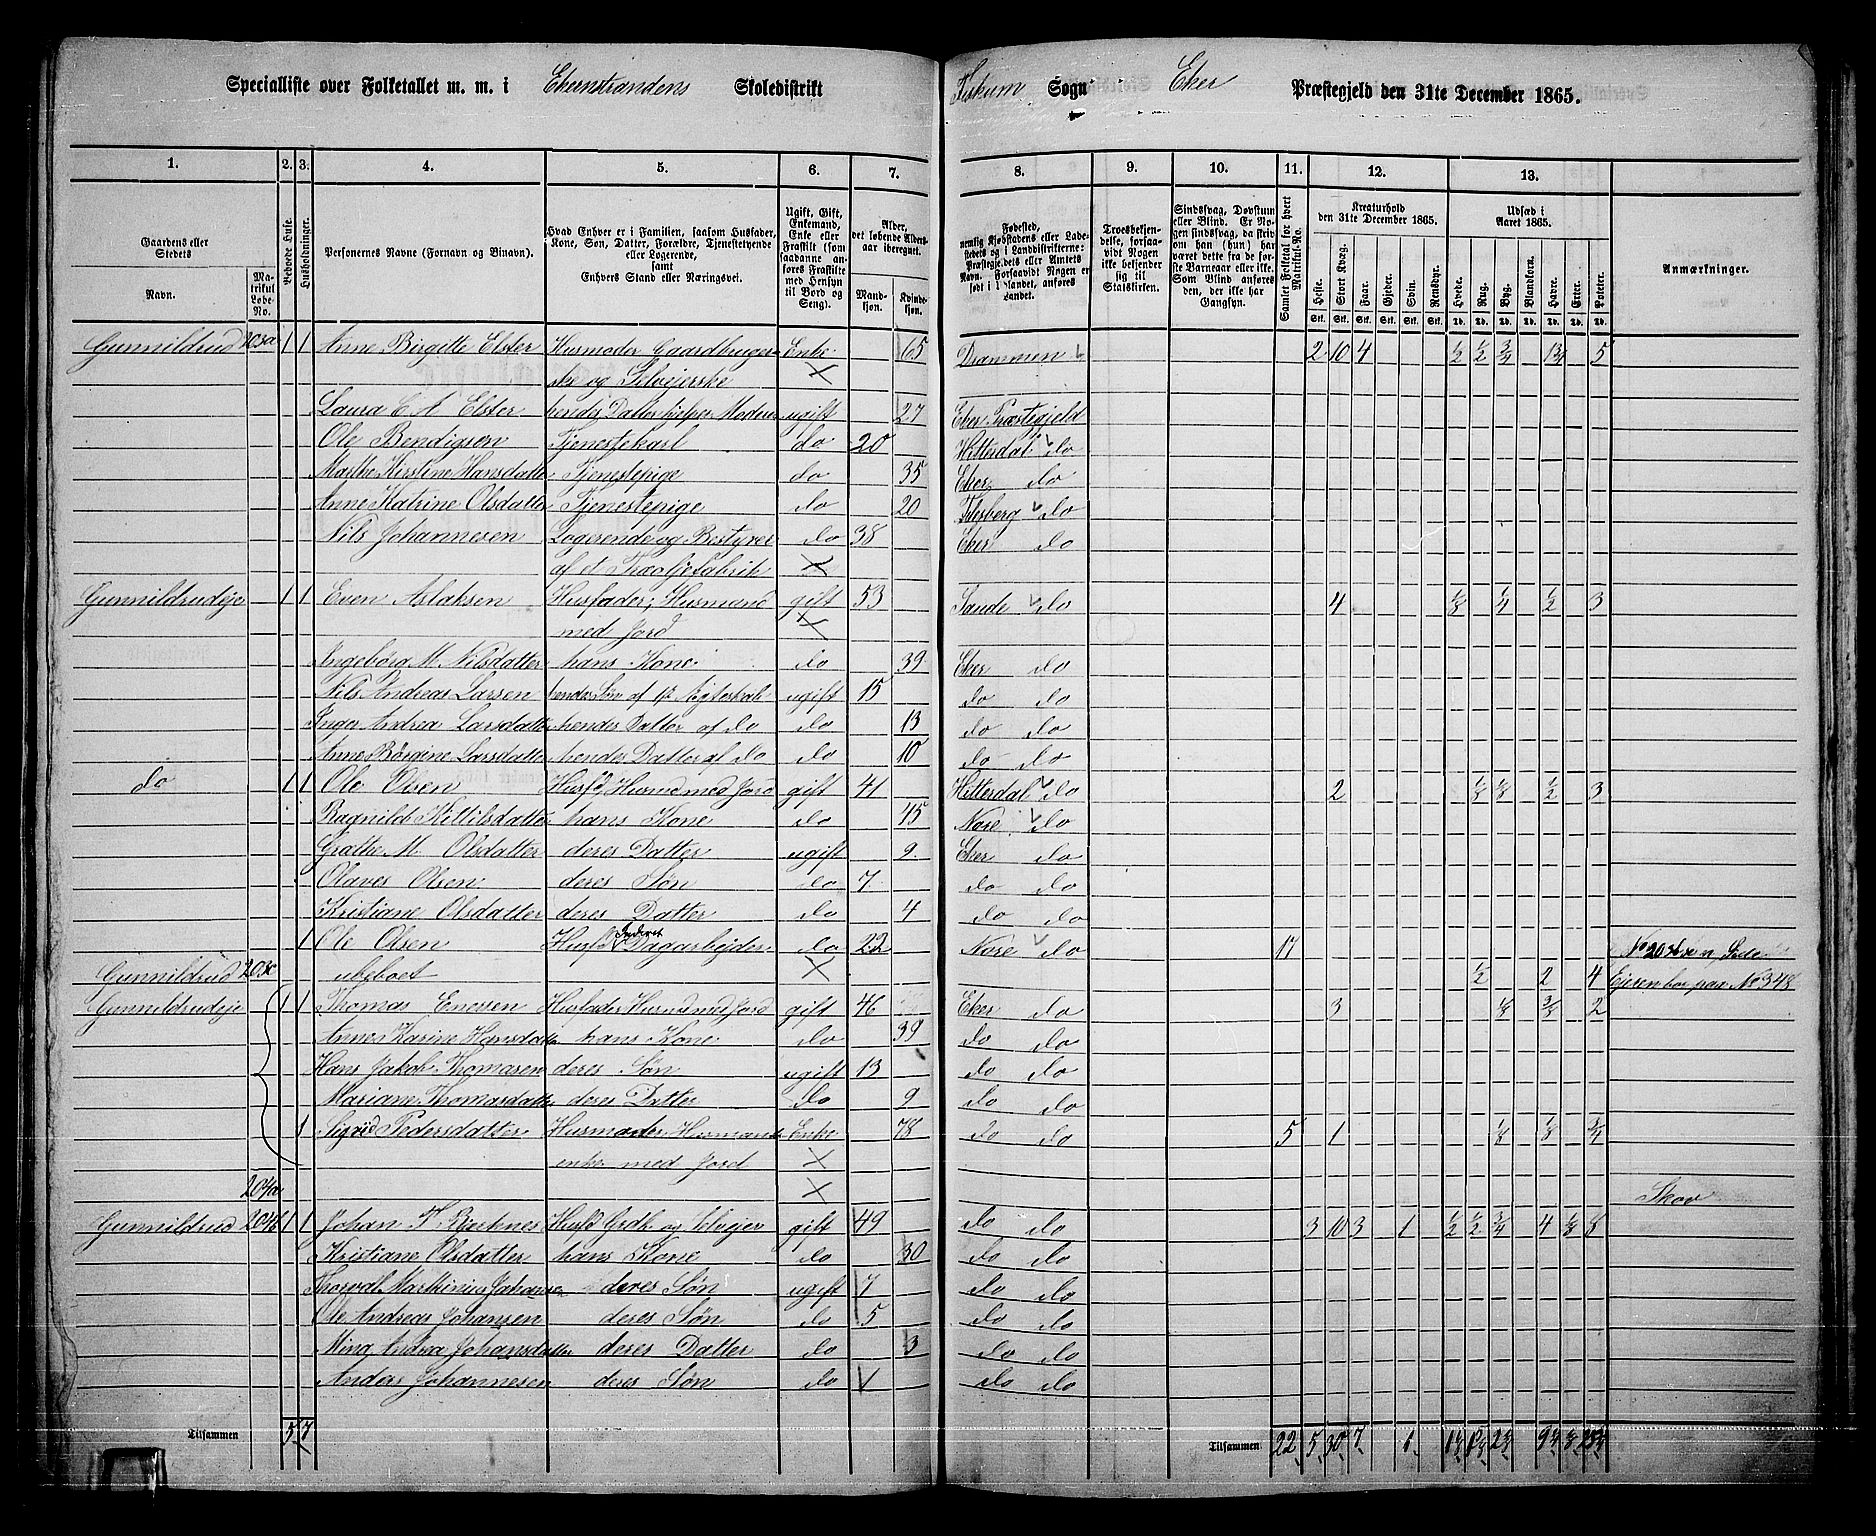 Specialliste over Folketallet m. m. i Ekerstrandens Skoledistrikt Fiskum Sogn Eker Præstegjeld den 31te December 1865.
1. 2. 3. 4. 5. 6. 7. 8. 9. 10. 11. 12. 13.
Gaardens eller Stedets Navn. Matrikul Løbe-No.
Beboede Huse.
Husholdninger.
Personernes Navne (Fornavn og Binavn).
Hvad Enhver er i Familien, saasom Husfader, Kone, Søn, Datter, Forældre, Tjenestetyende eller Logerende, samt Enhvers Stand eller Næringsvei.
Ugift, Gift, Enkemand, Enke eller Fraskilt (som saadanne anføres Fraskilte med Hensyn til Bord og Seng).
Alder, det løbende Alders-aar iberegnet. Mandkjøn. Kvindekjøn.
Troesbekjendelse, forsaavidt Nogen ikke bekjender sig til Statskirken.
Sindssvag, Døvstum eller Blind. Er Nogen sindssvag, da skriv om han (hun) har været dette fra de første Barneaar eller ikke. Som Blind anføres den, der ikke har Gangsyn.
Samlet Folketal for hvert Matrikul-No.
Kreaturhold den 31te December 1865.
Heste. Stort Kvæg. Faar. Gjeder. Svin. Rensdyr.
Udsæd i Aaret 1865.
Hvede. Rug. Byg. Blandkorn. Havre. Erter. Poteter.
Anmærkninger.
Gunnildrud 203a 1 1 Anne Birgitte Elster Husmoder Gaardbruger- Enke 65 Drammen 2 10 4 1/2 1/2 3/4 1 3/4 5
ske og Selveierske
Laura C A Elster hendes Datter hjelper Moderen ugift 27 Eker Præstegjeld
Ole Bendigsen Tjenestekarl do 20 Hitterdal do
Marthe Kirstine Hansdatter Tjenestepige do 35 Eker do
Anne Katrine Olsdatter Tjenestepige do 20 Flesberg do
Nils Johannesen Logerende og Bestyrer do 38 Eker do
af et Træoljefabrik
Gunnildrudeje 1 1 Even Aslaksen Husfader, Husmand gift 53 Sande do 4 1/8 1/4 1/2 3
med Jord
Ingeborg M. Nilsdatter hans Kone do 39 Eker do
Nils Andreas Larsen hendes Søn af 1ste Ægteskab ugift 15 do do
Inger Andrea Larsdatter hendes Datter af do do 13 do do
Anne Børgine Larsdatter hendes Datter af do do 10 do do
do 1 1 Ole Olsen Husfd Husmd med Jord gift 41 Hitterdal do 2 1/8 1/8 1/2 3
Ragnild Kittilsdatter hans Kone do 45 Nore do
Grathe M. Olsdatter deres Datter ugift 9 Eker do
Olaves Olsen deres Søn do 7 do do
Kristiane Olsdatter deres Datter do 4 do do
1 Ole Olsen Husfd Inderst Dagarbejder do 22 Nore do 17
Gunnildrud 203c ubeboet 1/2 2 4 Ejeren bor paa No 348
Gunnildrudeje 1 1 Thomas Enersen Husfader Husmd med Jord gift 46 Eker do 3 1/8 3/8 2
Anne Karine Hansdatter hans Kone do 39 do do
Hans Jakob Thomasen deres Søn ugift 13 do do
Mariane Thomasdatter deres Datter do 9 do do
1 Sigrid Pedersdatter Husmoder, Husmands- Enke 78 do do 5 1 1/8 1/8 3/4
enke med Jord
204a Skov
Gunnildrud 204b 1 1 Johan T. Bjerknes Husfd Grdb. og Selvejer gift 49 do do 3 10 3 1 1/2 1/2 3/4 4 1/8 8
Kristiane Olsdatter hans Kone do 30 do do
Thorvald Marthinius Johansen deres Søn ugift 7 do do
Ole Andreas Johansen deres Søn do 5 do do
Mina Andrea Johansdatter deres Datter do 3 do do
Andos Johannesen deres Søn do 1 do do
Tilsammen 5 7 Tilsammen 22 5 30 7 1